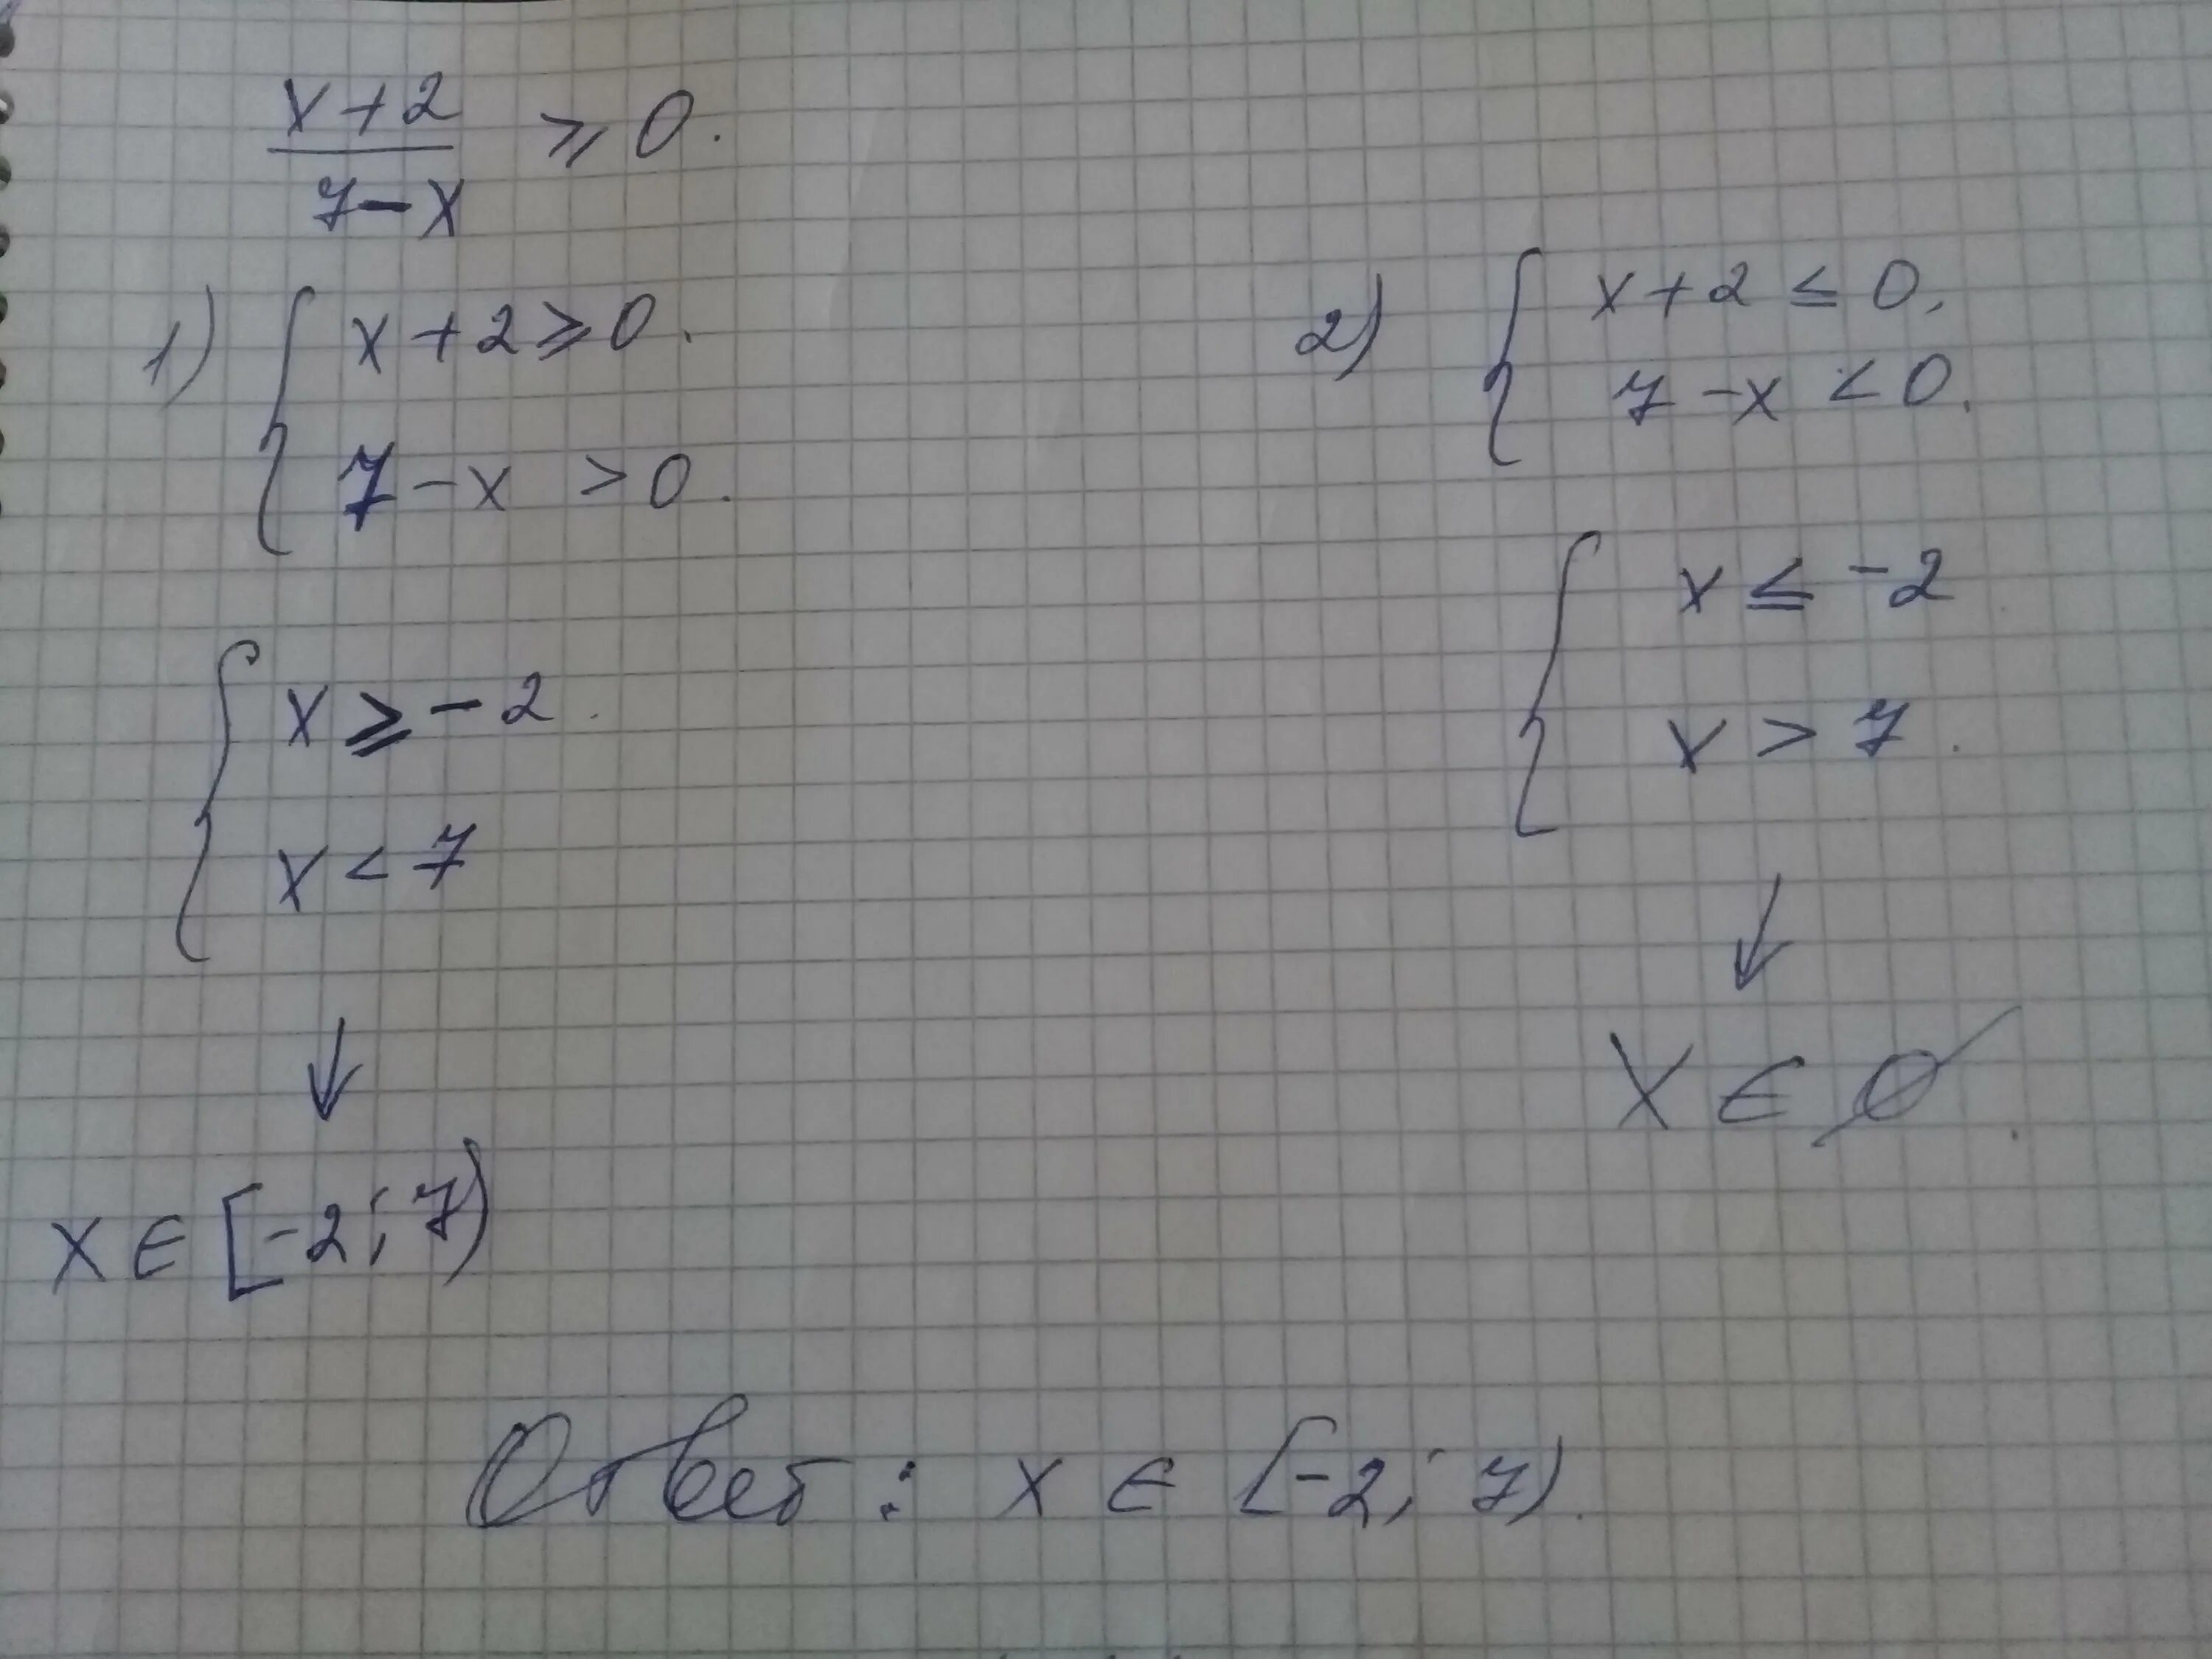 x+2
7-x ⩾ 0.
1) { x+2⩾0.
7-x >0.
{ x⩾-2.
x<7
↓
x∈[-2;7)
2) { x+2 ≤ 0,
7-x <0.
{ x ≤ -2
x > 7.
↓
X∈∅.
Ответ: x∈[-2; 7).